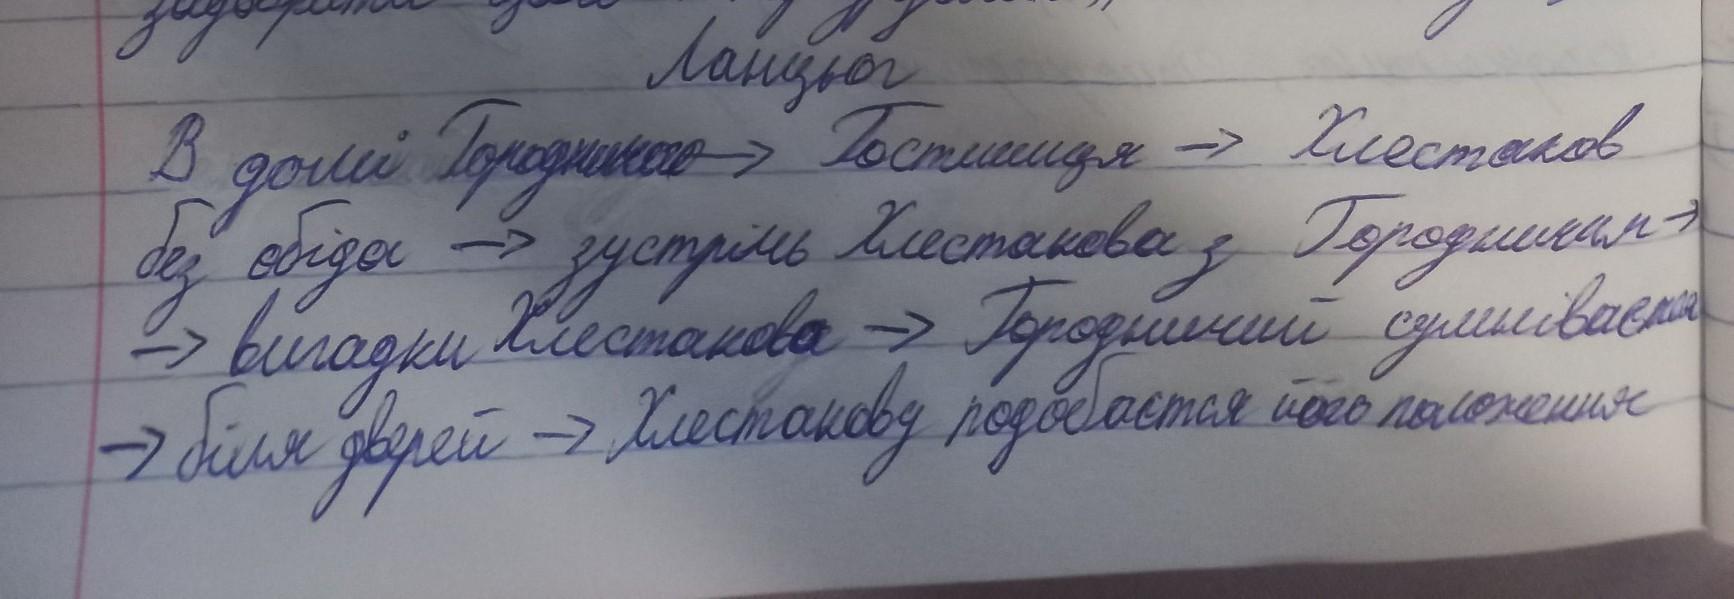 Ланцюг
В домі Городничого → Гостиниця → Хлестаков
без обіда → зустріль Хлестакова з Городничим →
→ вигадки Хлестакова → Городничий сумнівається
→ біля дверей → Хлестакову подобається його положення